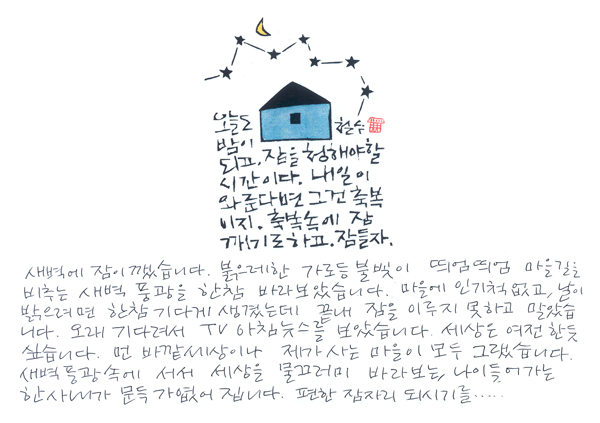 오늘도
밤이
되고, 잠을 청해야할
시간이다. 내일이
와준다면 그건 축복
이지. 축복속에 잠
깨기로하고, 잠들자.
철수
새벽에 잠이 깼습니다. 붉으레한 가로등 불빛이 띄엄띄엄 마을길을
비추는 새벽 풍광을 한참 바라보았습니다. 마을에 인기척 없고, 날이
밝으려면 한참 기다게 생겼는데 끝내 잠을 이루지 못하고 말았습
니다. 오래 기다려서 TV 아침뉴스를 보았습니다. 세상은 여전한듯
싶습니다. 먼 바깥세상이나 제가 사는 마을이 모두 그랬습니다.
새벽풍광속에 서서 세상을 물끄러미 바라보는, 나이들어가는
한 사내가 문득 가엾어 집니다. 편한 잠자리 되시기를.....